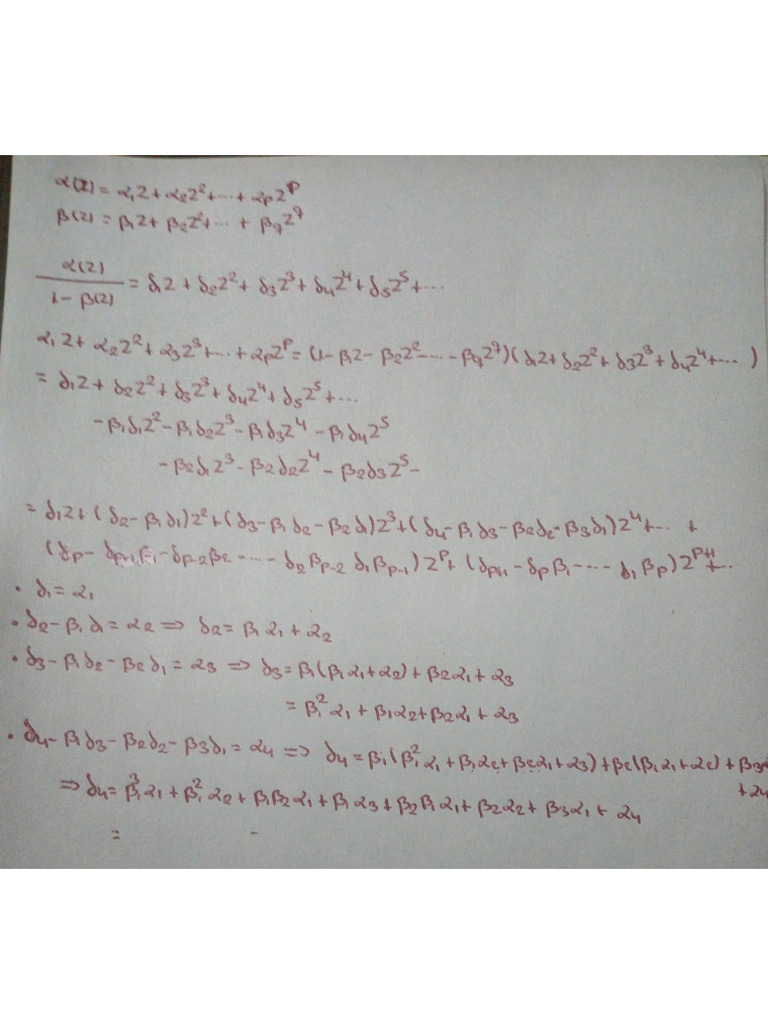 α(z) = α₁z + α₂z² + ··· + αₚzᵖ
β(z) = β₁z + β₂z² + ··· + β_q z^q
α(z) / (1 - β(z)) = δ₁z + δ₂z² + δ₃z³ + δ₄z⁴ + δ₅z⁵ + ···
α₁z + α₂z² + α₃z³ + ··· + αₚzᵖ = (1 - β₁z - β₂z² ··· - β_q z^q)(δ₁z + δ₂z² + δ₃z³ + δ₄z⁴ + ··· )
= δ₁z + δ₂z² + δ₃z³ + δ₄z⁴ + δ₅z⁵ + ···
- β₁δ₁z² - β₁δ₂z³ - β₁δ₃z⁴ - β₁δ₄z⁵
- β₂δ₁z³ - β₂δ₂z⁴ - β₂δ₃z⁵ -
= δ₁z + (δ₂ - β₁δ₁)z² + (δ₃ - β₁δ₂ - β₂δ₁)z³ + (δ₄ - β₁δ₃ - β₂δ₂ - β₃δ₁)z⁴ + ··· +
(δₚ - δₚ₋₁β₁ - δₚ₋₂β₂ ··· - δ₂βₚ₋₂ δ₁βₚ₋₁)zᵖ + (δₚ₊₁ - δₚβ₁ - ··· δ₁βₚ)zᵖ⁺¹ + ··
· δ₁ = α₁
· δ₂ - β₁δ₁ = α₂ ⇒ δ₂ = β₁α₁ + α₂
· δ₃ - β₁δ₂ - β₂δ₁ = α₃ ⇒ δ₃ = β₁(β₁α₁ + α₂) + β₂α₁ + α₃
= β₁²α₁ + β₁α₂ + β₂α₁ + α₃
· δ₄ - β₁δ₃ - β₂δ₂ - β₃δ₁ = α₄ ⇒ δ₄ = β₁(β₁²α₁ + β₁α₂ + β₂α₁ + α₃) + β₂(β₁α₁ + α₂) + β₃α
+ α₄
⇒ δ₄ = β₁³α₁ + β₁²α₂ + β₁β₂α₁ + β₁α₃ + β₂β₁α₁ + β₂α₂ + β₃α₁ + α₄
= -